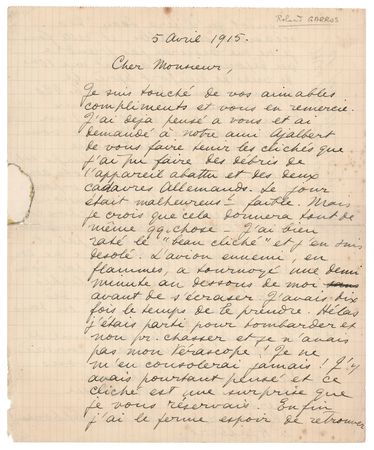 Roland GARROS
5 Avril 1915.
Cher Monsieur,
Je suis touché de vos aimables
compliments et vous en remercie.
J'ai deja pensé a vous et ai
demandé à notre ami Ajalbert
de vous faire tenir les clichés que
j'ai pu faire des débris de
l'appareil abattu et des deux
cadavres Allemands. Le jour
était malheureusᵗ faible. Mais
je crois que cela donnera tout de
même qq. chose - J'ai bien
raté le "beau cliché" et j'en suis
désolé. L'avion ennemi, en
flammes, a tournoyé une demi
minute au dessous de moi
avant de s'écraser. J'avais dix
fois le temps de le prendre. Hélas
j'étais parti pour bombarder et
non pr. chasser et je n'avais
pas mon térascope ! Je ne
m'en consolerai jamais ! J'y
avais pourtant pensé et ce
cliché est une surprise que
je vous réservais. Enfin
j'ai le ferme espoir de retrouver